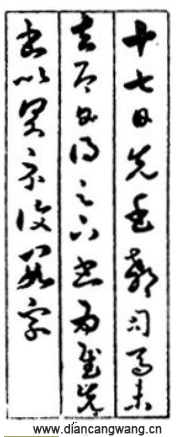 十七日先書郗司馬未
去即日得足下書爲慰先
書以具示復數字
www.diancangwang.cn